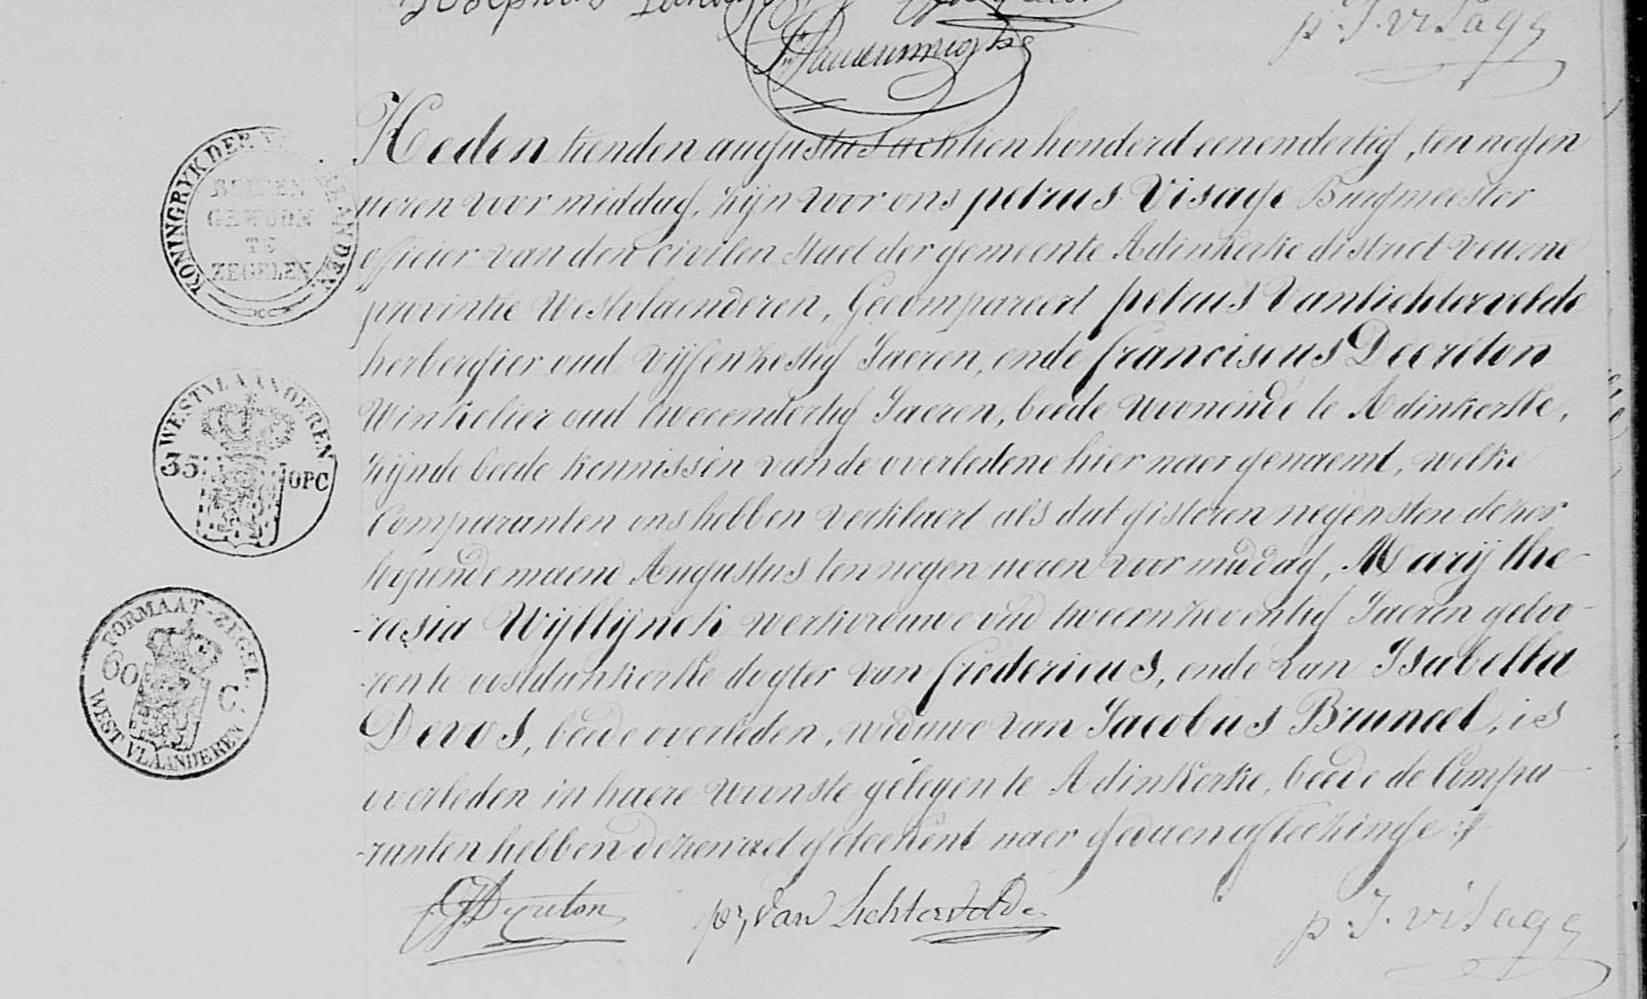 p. J. visage
Heden tienden augustus achtien honderd eenendertig, ten negen
ueren voor middag, zijn voor ons petrus Visage Burgmeester
officier van den civilen staet der gemeente Adinkerke district veurne
provintie Westvlaenderen, Gecompareert petrus Vanlichtervelde
herbergier oud vijfenzestig Jaeren, ende franciscus Decreton
Winkelier oud tweeendertig Jaeren, beede woonende te Adinkerke,
zijnde beede kennissen van de overledene hier naer genaemt, welke
Comparanten ons hebben verklaert als dat gisteren negensten dezer
loopende maend Augustus ten negen ueren voor middag, Marij the-
-resia Wijllijnck werkvrouwe oud tweeenzeventig Jaeren geboo-
-ren te oostdunkerke dogter van fredericus, ende van Isabella
Devos, beede overleden, weduwe van Jacobus Bruneel, is
overleden in haere woonste gelegen te Adinkerke, beede de Compa-
-ranten hebben dezen act geteekent naer gedaen aflezinge
Decreton p. van Lichtervelde p. J. visage
KONINGRYK DER NEDERLANDEN
BUITEN
GEWOON
TE
ZEGELEN
WESTVLAANDEREN
35 OPC
FORMAAT-ZEGEL
60 C.
WEST VLAANDEREN